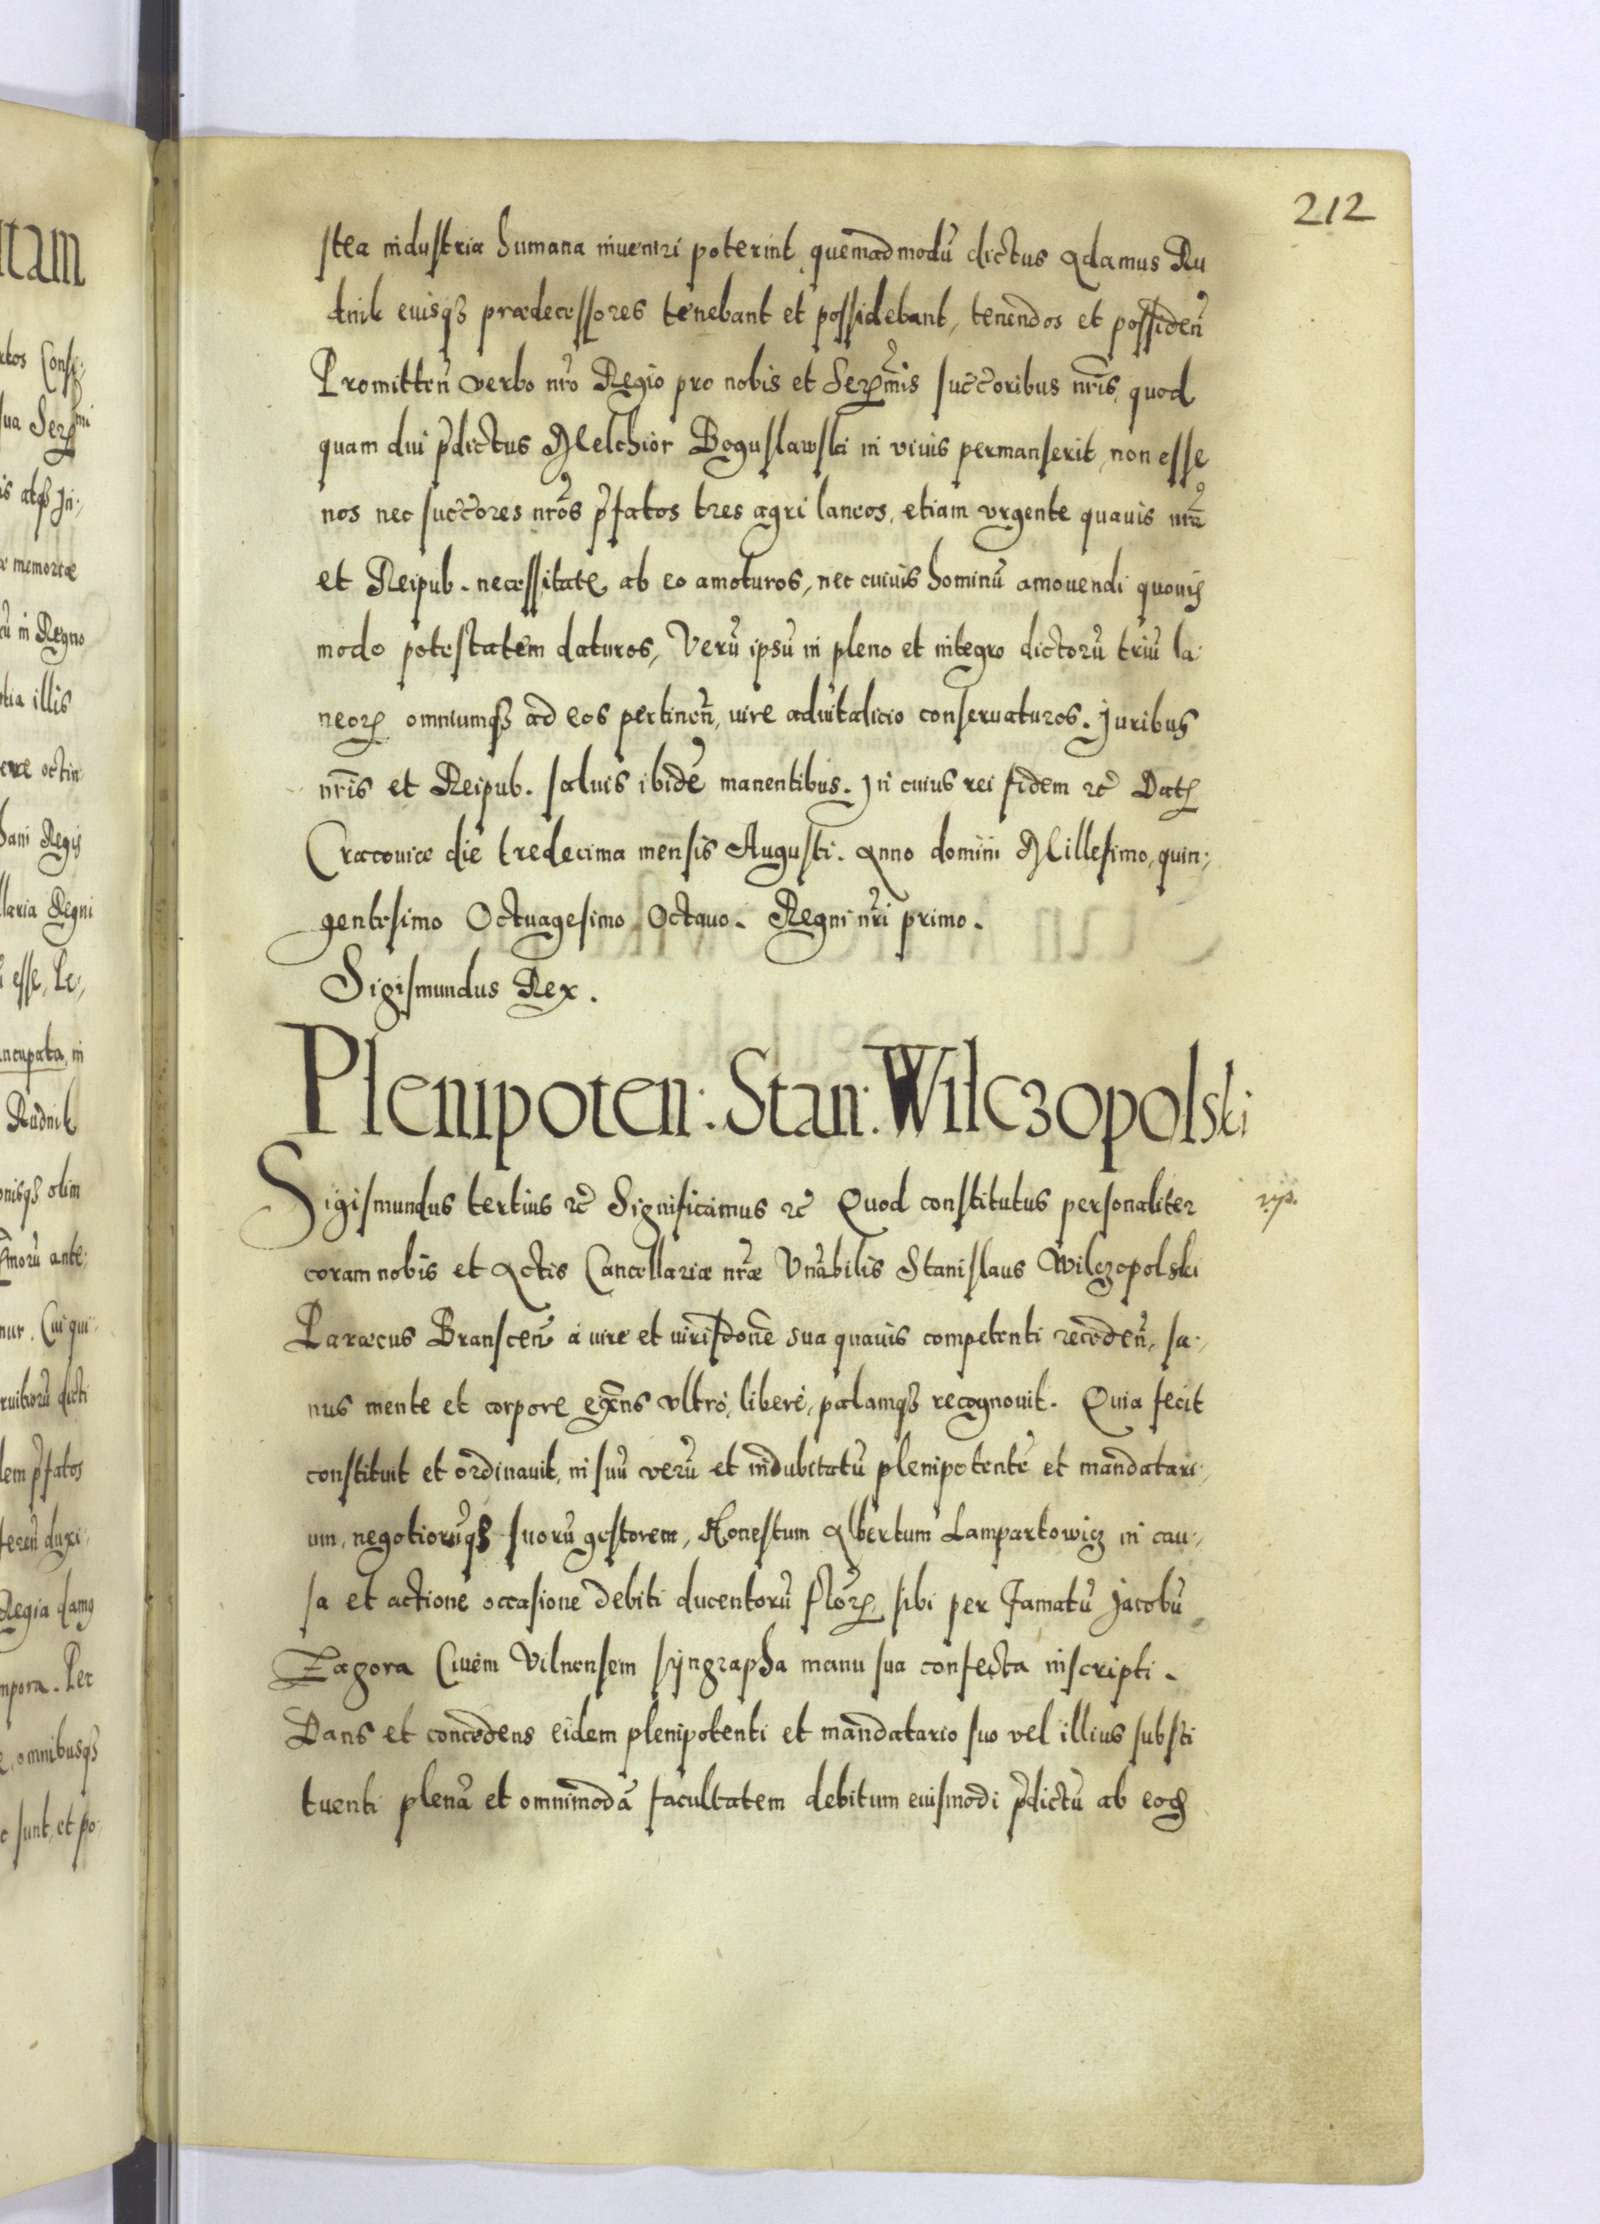 212
stea industria humana inueniri poterint, quemadmodū dictus Adamus Ru
dnik euisqз prædecessores tenebant et possidebant, tenendos et possiden̄
Promitten̄ verbo nr̄o Regio pro nobis et Ser̄mis succ̄oribus nr̄is, quod
quam diu p̄dictus Melchior Boguslawski in viuis permanserit, non esse
nos nec succ̄ores nr̄os p̄fatos tres agri laneos, etiam vrgente quauis nr̄a
et Reipub. necessitate, ab eo amoturos, nec cuiuis hominū amouendi quouis
modo potestatem daturos, Verū ipsū in pleno et integro dictorū triū la-
neorꝝ omniumqз ad eos pertinen̄, iure aduitalicio conseruaturos. Juribus
nr̄is et Reipub. saluis ibidē manentibus. In cuius rei fidem etc̄ Datꝝ
Cracouiæ die tredecima mensis Augusti. Anno domini Millesimo, quin-
gentesimo Octuagesimo Octauo. Regni nr̄i primo.
Sigismundus Rex.
Plenipoten: Stan: Wilczopolski
Sigismundus tertius etc̄ Significamus etc̄ Quod constitutus personaliter
coram nobis et Actis Cancellariæ nr̄æ Vn̄abilis Stanislaus Wilczopolski
Paræcus Branscen̄ à iure et iurisdōne sua quauis competenti receden̄, sa-
nus mente et corpore exn̄s vltrò, liberè, palamqз recognouit. Quia fecit
constituit et ordinauit, in suū verū et indubitatū plenipotentē et mandatari-
um, negotiorūqз suorū gestorem, Honestum Albertum Lampartowicz in cau-
sa et actione occasione debiti ducentorū flōrꝝ sibi per Famatū Jacobū
Zagora Ciuem Vilnensem syngrapha manu sua confecta inscripti.
Dans et concedens eidem plenipotenti et mandatario suo vel illius substi
tuenti plenā et omnimodā facultatem debitum euismodi p̄dictū ab eod